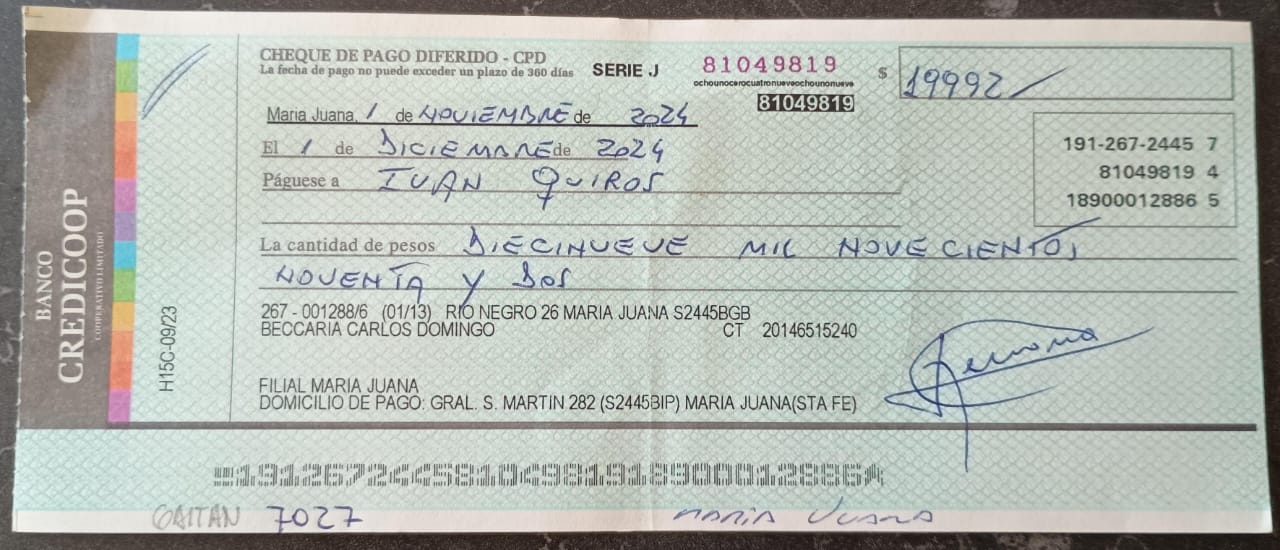 BANCO
CREDICOOP
COOPERATIVO LIMITADO
H15C-09/23
CHEQUE DE PAGO DIFERIDO - CPD
La fecha de pago no puede exceder un plazo de 360 días
SERIE J
81049819
ochounocerocuatronueveochounonueve
81049819
$ 19992/
Maria Juana, 1 de NOVIEMBRE de 2024
El 1 de DICIEMBRE de 2024
Páguese a IVAN QUIROS
191-267-2445 7
81049819 4
18900012886 5
La cantidad de pesos DIECINUEVE MIL NOVECIENTOS
NOVENTA Y DOS
267 - 001288/6 (01/13) RIO NEGRO 26 MARIA JUANA S2445BGB
BECCARIA CARLOS DOMINGO CT 20146515240
FILIAL MARIA JUANA
DOMICILIO DE PAGO: GRAL. S. MARTIN 282 (S2445BIP) MARIA JUANA(STA FE)
19126724458104981918900012886
GAITAN 7027 MARIA JUANA